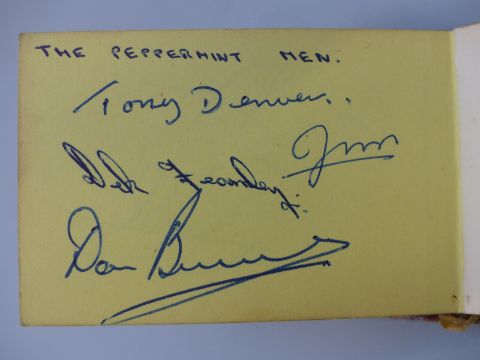 THE PEPPERMINT MEN.
Tony Denver.
Jim
Dek Fearnley.
Don